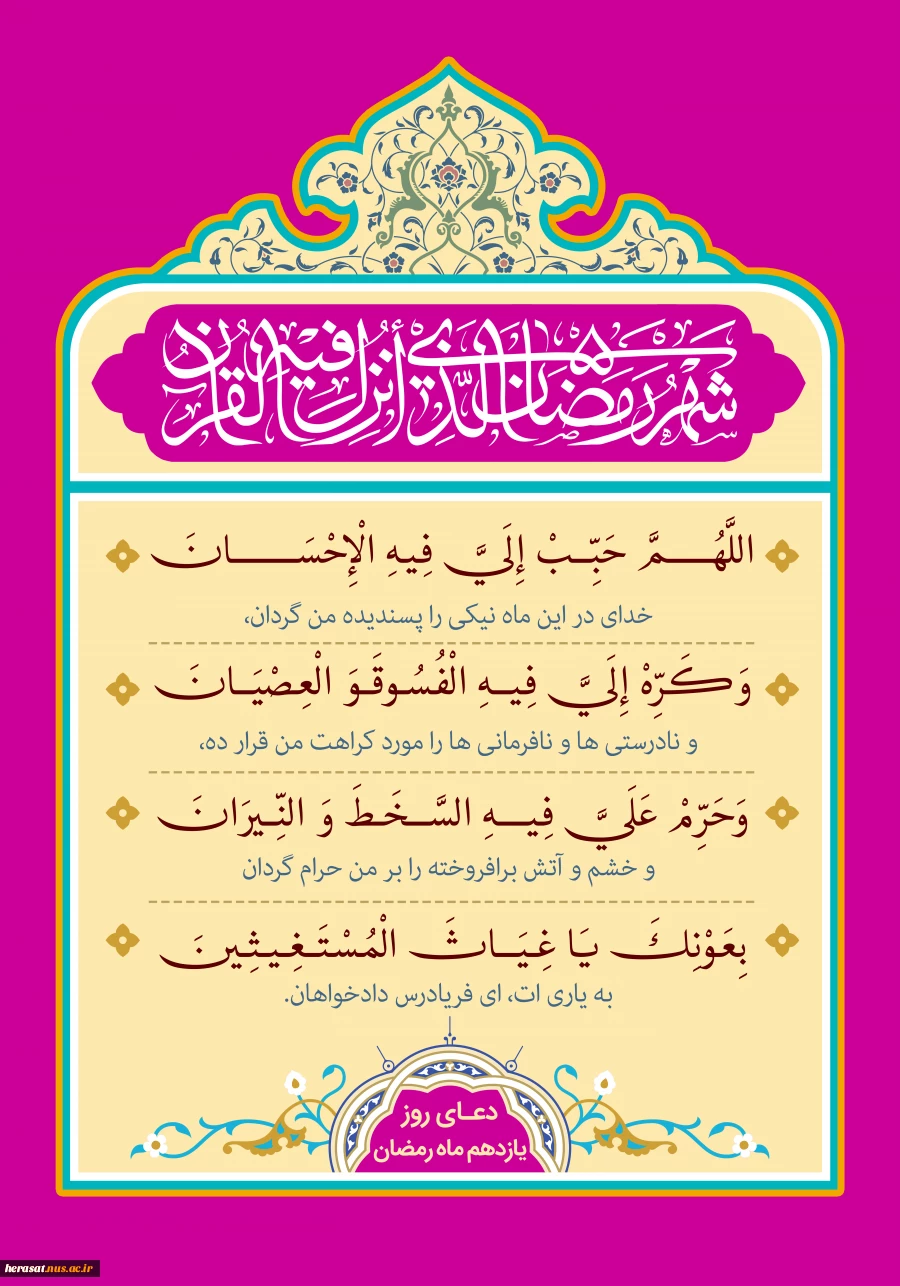 شَهْرُ رَمَضَانَ الَّذِي أُنْزِلَ فِيهِ الْقُرْآنُ
اللَّهُمَّ حَبِّبْ إِلَيَّ فِيهِ الْإِحْسَانَ
خدای در این ماه نیکی را پسندیده من گردان،
وَكَرِّهْ إِلَيَّ فِيهِ الْفُسُوقَوَ الْعِصْيَانَ
و نادرستی ها و نافرمانی ها را مورد کراهت من قرار ده،
وَحَرِّمْ عَلَيَّ فِيهِ السَّخَطَ وَ النِّيرَانَ
و خشم و آتش برافروخته را بر من حرام گردان
بِعَوْنِكَ يَا غِيَاثَ الْمُسْتَغِيثِينَ
به یاری ات، ای فریادرس دادخواهان.
دعای روز
یازدهم ماه رمضان
herasat.nus.ac.ir